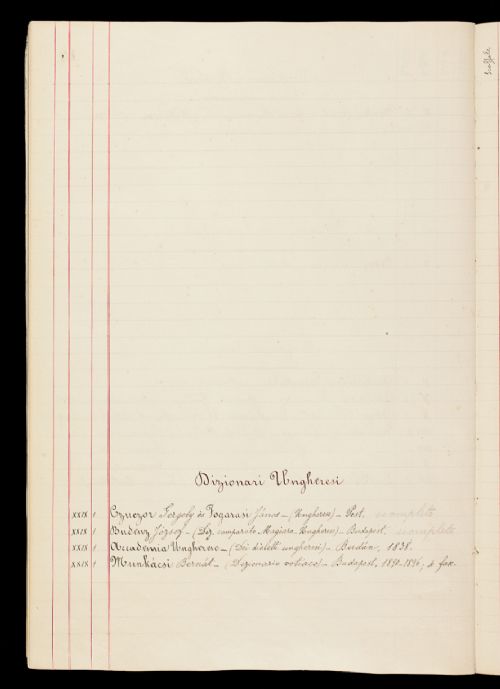 Scaffale
Dizionari Ungheresi
XXIX 1 Czuczor Gergely és Fogarasi János – (Ungherese) – Pest. incompleto
XXIX 1 Budenz József – (Diz. comparato Magiaro-Ungherese) – Budapest. incompleto
XXIX 1 Accademia Ungherese – (Dei dialetti ungheresi) – Budán, 1838.
XXIX 1 Munkácsi Bernát – (Dizionario votiaco) – Budapest, 1890-1896; 4 fasc.